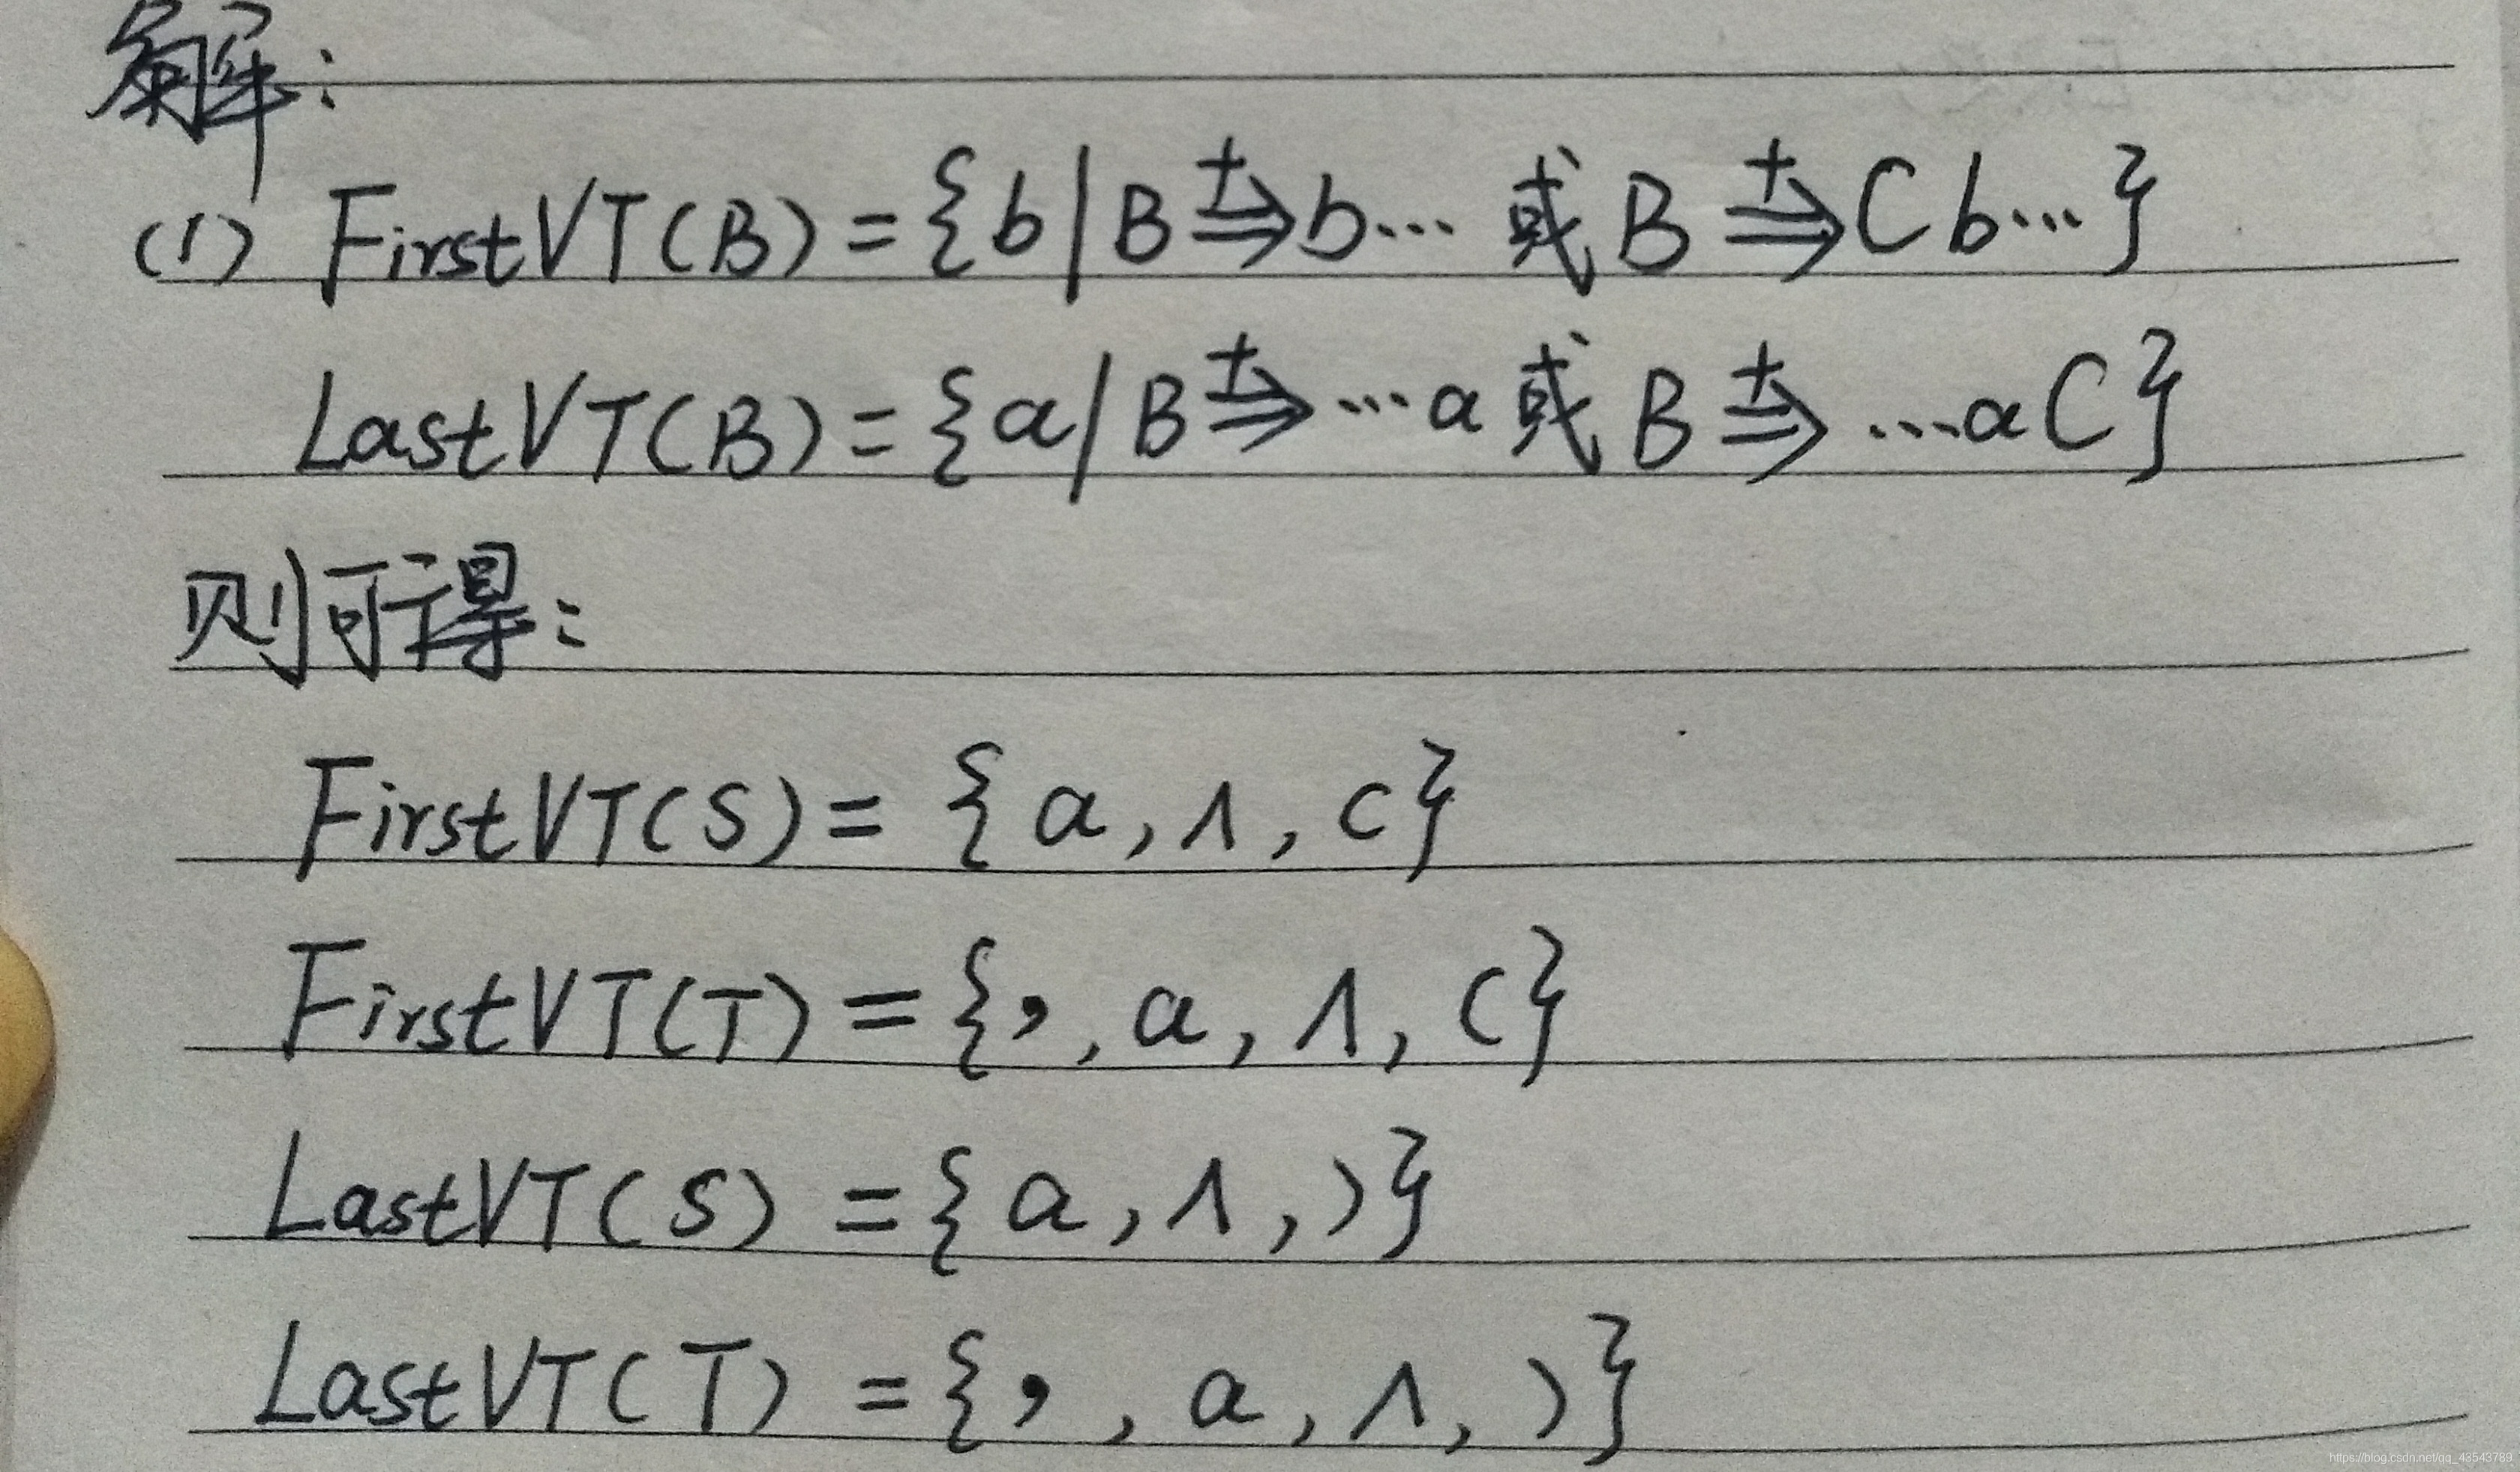 解:
(1) FirstVT(B) = {b | B ⇒⁺ b… 或 B ⇒⁺ Cb…}
LastVT(B) = {a | B ⇒⁺ …a 或 B ⇒⁺ …aC}
则可得:
FirstVT(S) = {a, ∧, (}
FirstVT(T) = {,, a, ∧, (}
LastVT(S) = {a, ∧, )}
LastVT(T) = {,, a, ∧, )}
https://blog.csdn.net/qq_43543789